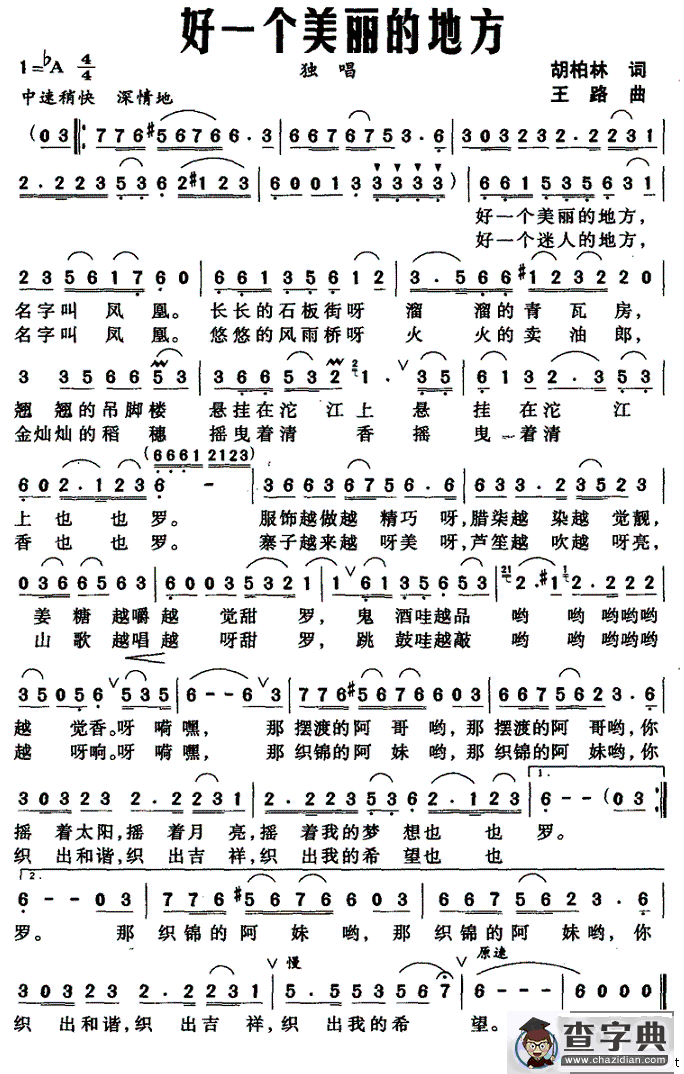 好一个美丽的地方
1=♭A 4/4 独唱 胡柏林 词
中速稍快 深情地 王路 曲
(03 ‖: 776 #56766.3 | 6676753.6 | 303232.2231 |
2.2235362#123 | 6001333 3 3) | 661535631 |
好一个美丽的地方,
好一个迷人的地方,
23561760 | 661356112 | 3.566#1232 20 |
名字叫凤凰。长长的石板街呀溜溜的青瓦房,
名字叫凤凰。悠悠的风雨桥呀火火的卖油郎,
3 356653 | 366532 1. ∨ 35 | 6132.353 |
翘翘的吊脚楼悬挂在沱江上悬挂在沱江
金灿灿的稻穗摇曳着清香摇曳着清
(6661 2123)
602.1236 - | 36636756.6 | 3.323523 |
上也也罗。服饰越做越精巧呀,腊染越染越觉靓,
香也也罗。寨子越来越呀美呀,芦笙越吹越呀亮,
03665563 | 60035321 | 1 ∨ 6135653 | 2.#12.222 |
姜糖越嚼越觉甜罗,鬼酒哇越品哟哟哟哟哟
山歌越唱越呀甜罗,跳鼓哇越敲哟哟哟哟哟
35056 ∨ 535 | 6--6 ∨ 3 | 776#5676603 | 66756523.6 |
越觉香。呀嗬嘿,那摆渡的阿哥哟,那摆渡的阿哥哟,你
越呀响。呀嗬嘿,那织锦的阿妹哟,那织锦的阿妹哟,你
1.
30323 2.2231 | 2.2235362.123 | 6--(03 :‖
摇着太阳,摇着月亮,摇着我的梦想也也罗。
织出和谐,织出吉祥,织出我的希望也也
2.
6--03 | 776#567660 3 | 667562 3.6 |
罗。那织锦的阿妹哟,那织锦的阿妹哟,你
慢 原速
30323 2.2231 | 5.5535567 ∨ | 6--- | 6000 ‖
织出和谐,织出吉祥,织出我的希望。
查字典
www.chazidian.com
t